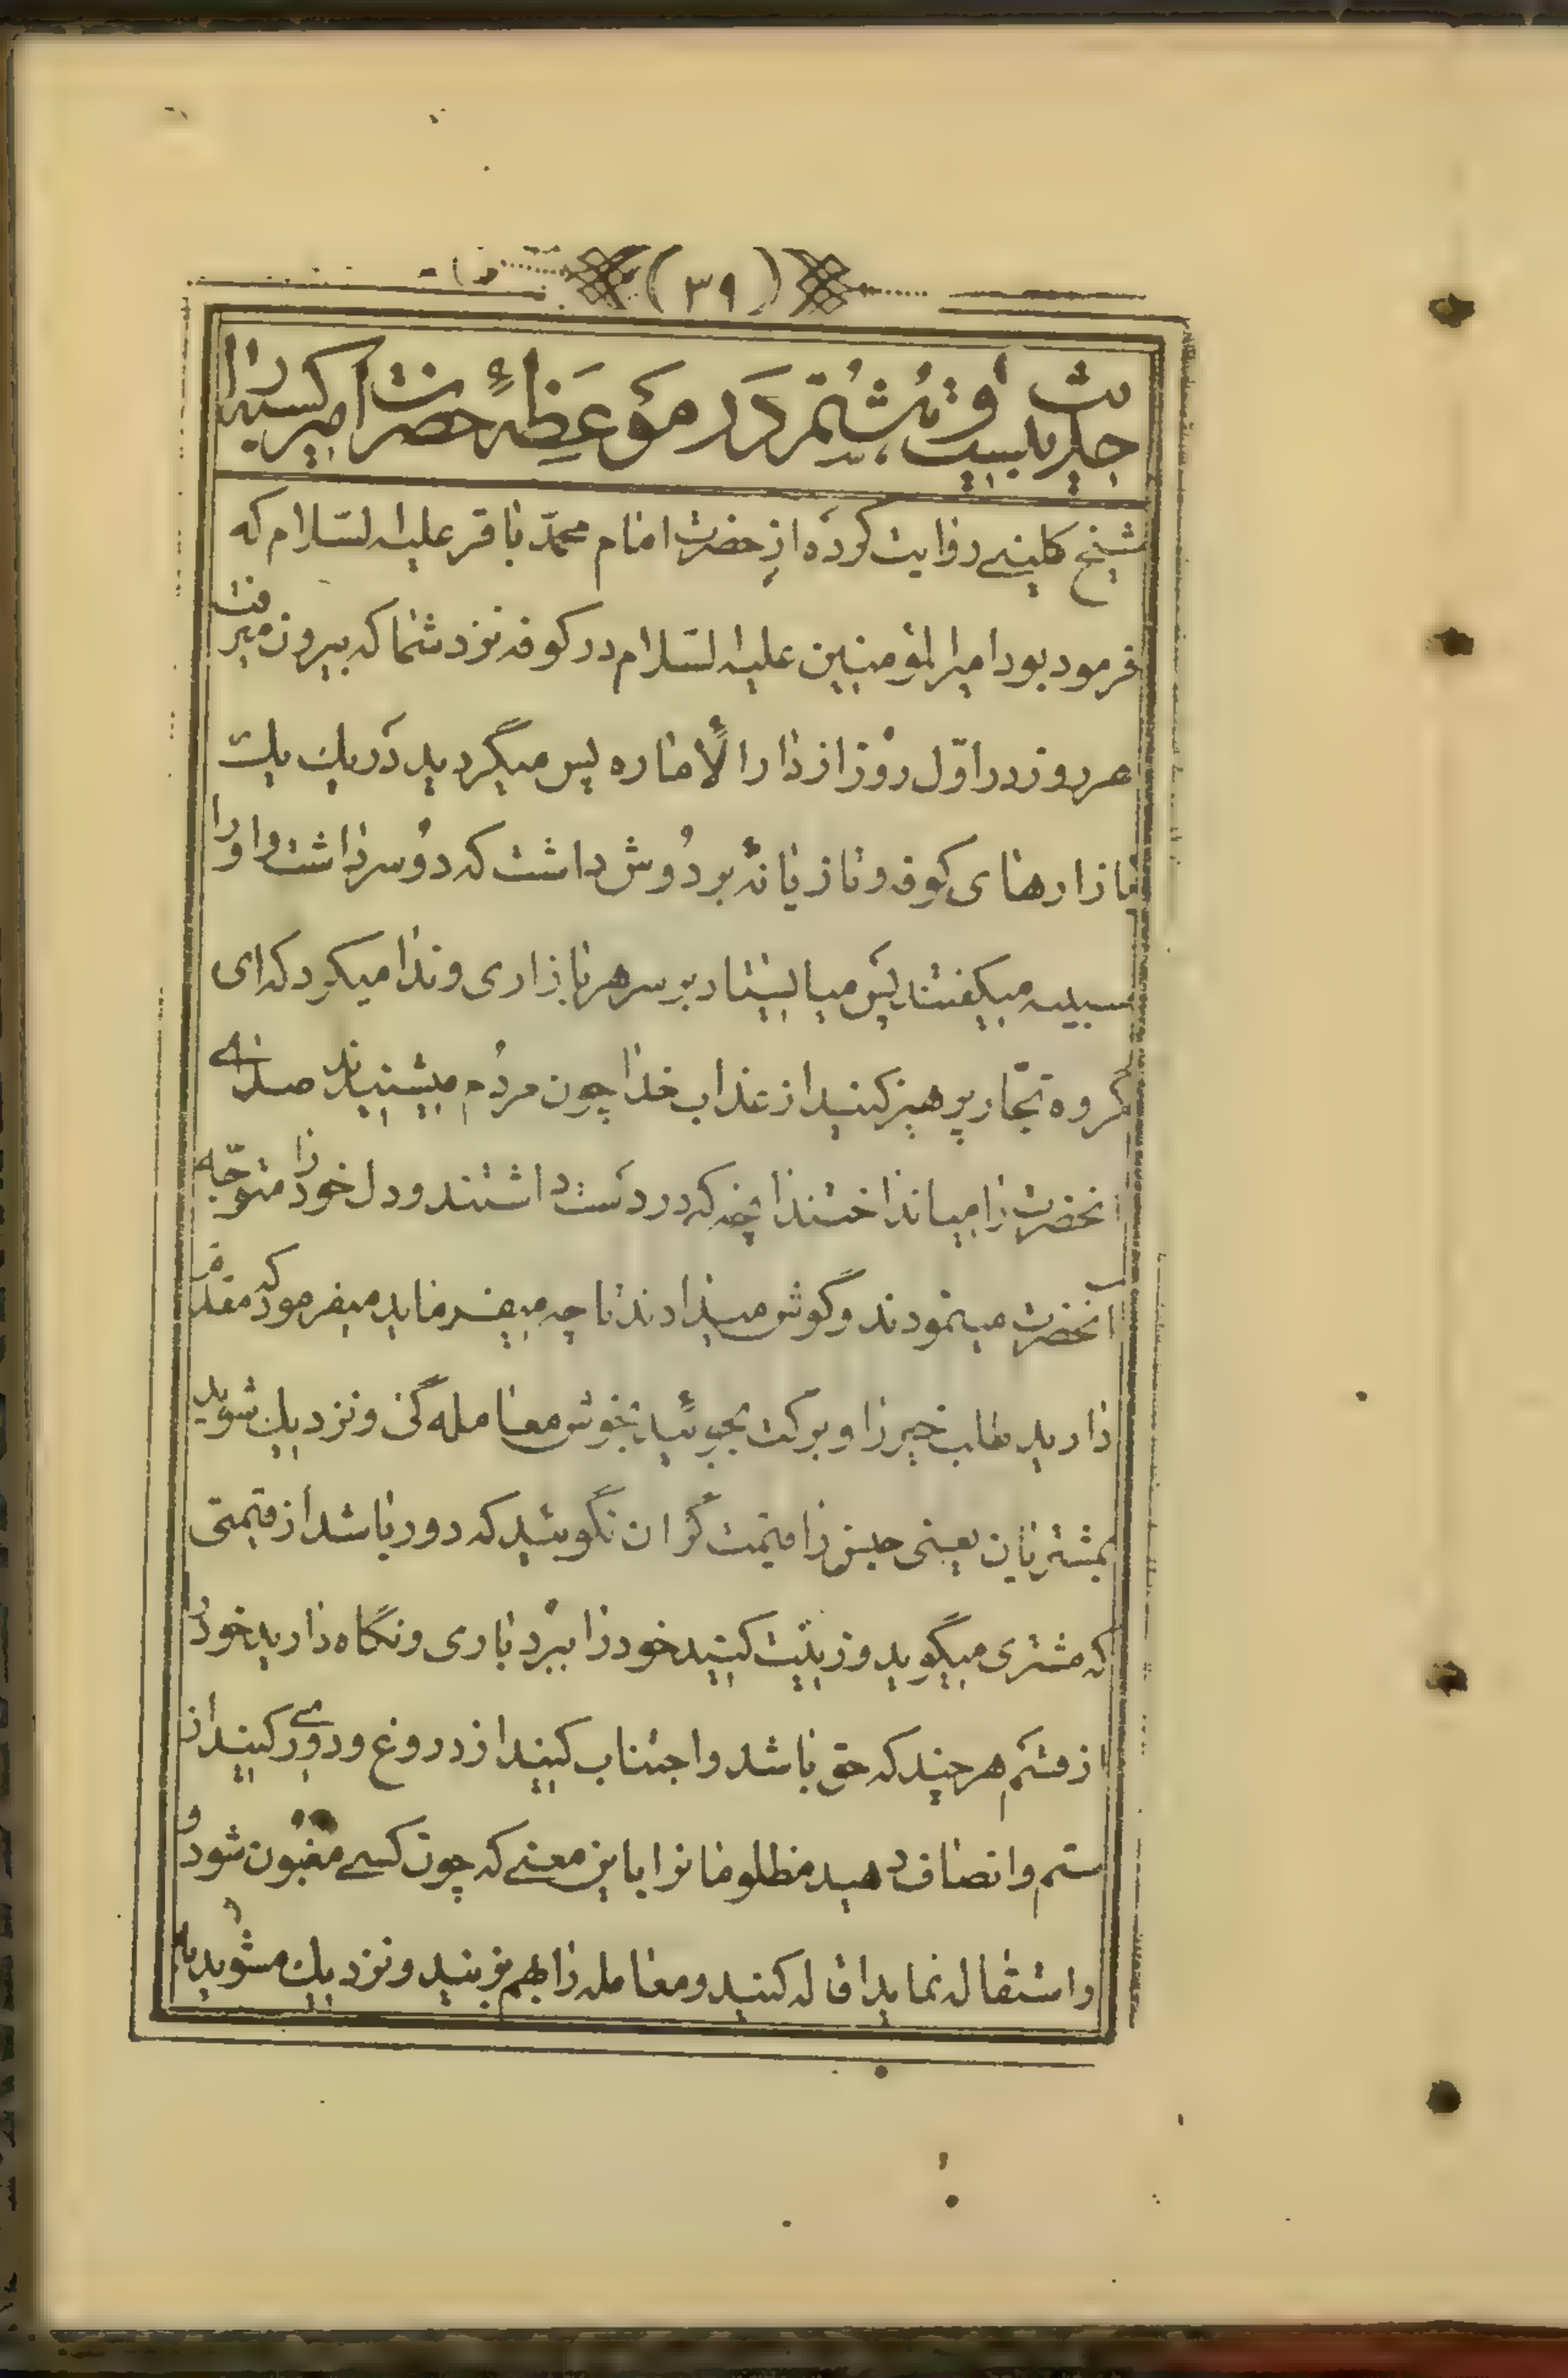 (٣٩)
حدیث بیست و ششم در موعظهٔ حضرت امیر کسبه را
شیخ کلینی روایت کرده از حضرت امام محمّد باقر علیه السّلام که
فرمود بود امیر المؤمنین علیه السّلام در کوفه نزد شما که بیرون میرفت
هر روز در اوّل روز از دار الأماره پس میگردید در یك یك
بازارهای کوفه و تازیانهٔ بر دُوش داشت که دو سر داشت و او را
سبیبه میگفتند پس میایستاد بر سر هر بازاری و ندا میکرد که ای
گروه تجّار پرهیز کنید از عذاب خدا چون مردُم میشنیدند صدای
آنحضرت را میانداختند آنچه که در دست داشتند و دل خود را متوجّه
آنحضرت مینمودند و گوش میدادند تا چه میفرماید میفرمود که مقدّم
دارید طلب خیر را و برکت بجوئید بخوش معامله گی و نزدیك شوید
بمشتریان یعنی جنس را قیمت گران نگوئید که دور باشد از قیمتی
که مشتری میگوید و زینت کنید خود را ببردباری و نگاه دارید خود را
از قسم هر چند که حق باشد و اجتناب کنید از دروغ و دوری کنید از
ستم و انصاف دهید مظلومانرا باین معنی که چون کسی مغبون شود و
و استقاله نماید اقاله کنید و معامله را بهم زنید و نزدیك مشوید به